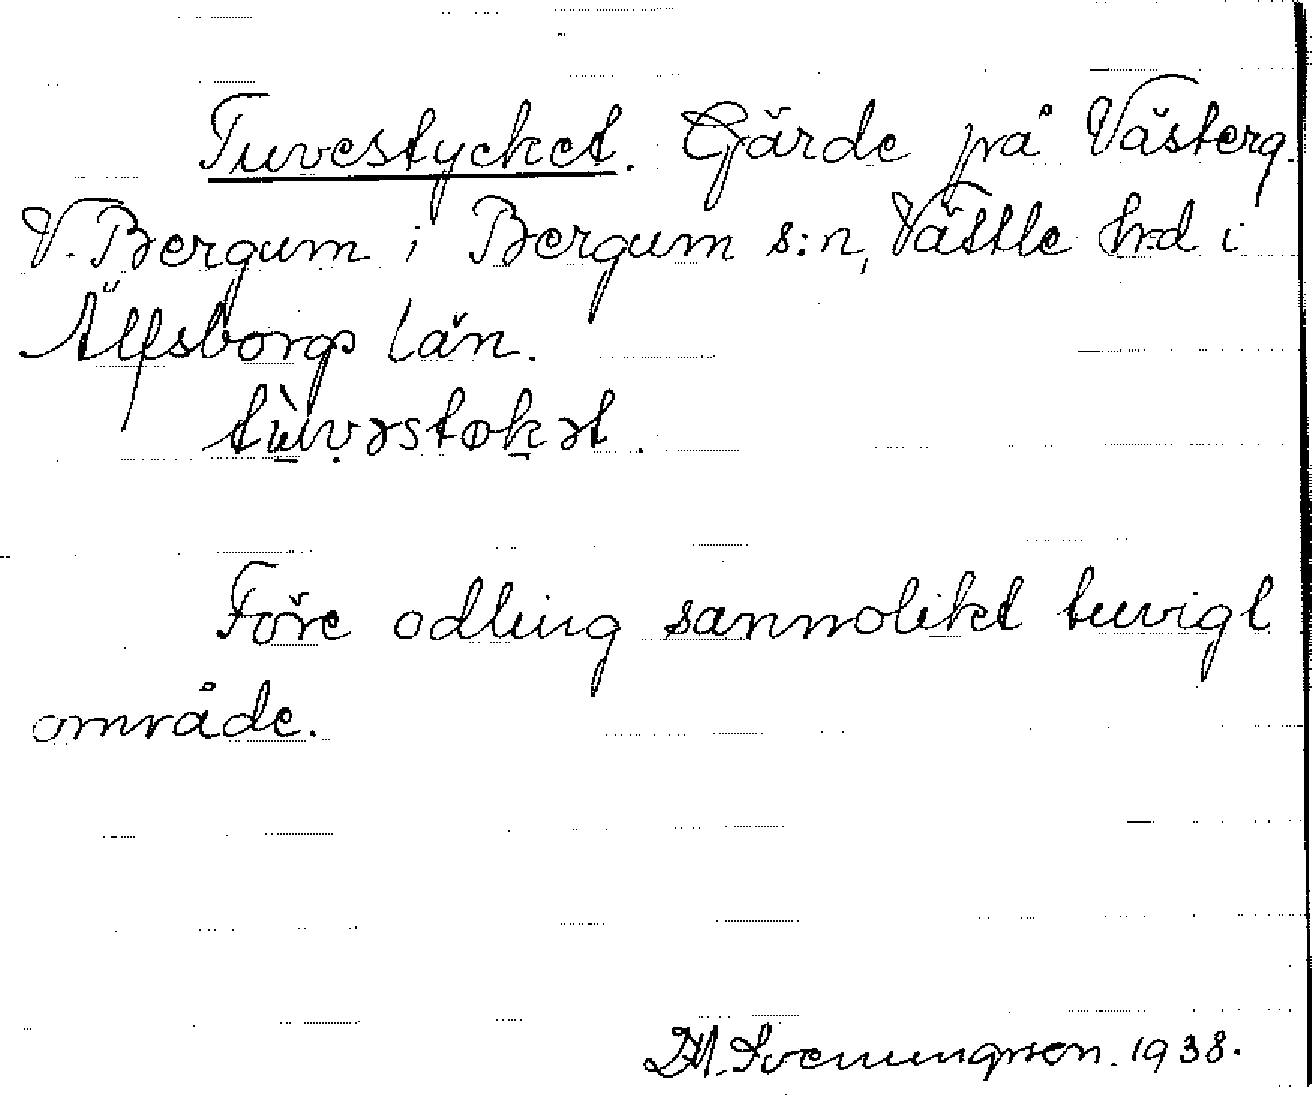 Tuvestycket. Gärde på Västerg.
V. Bergum i Bergum s:n, Vättle hrd i
Älfsborgs län.
tùvəstøkət.
Före odling sannolikt tuvigt
område.
D.M. Svenungsson. 1938.